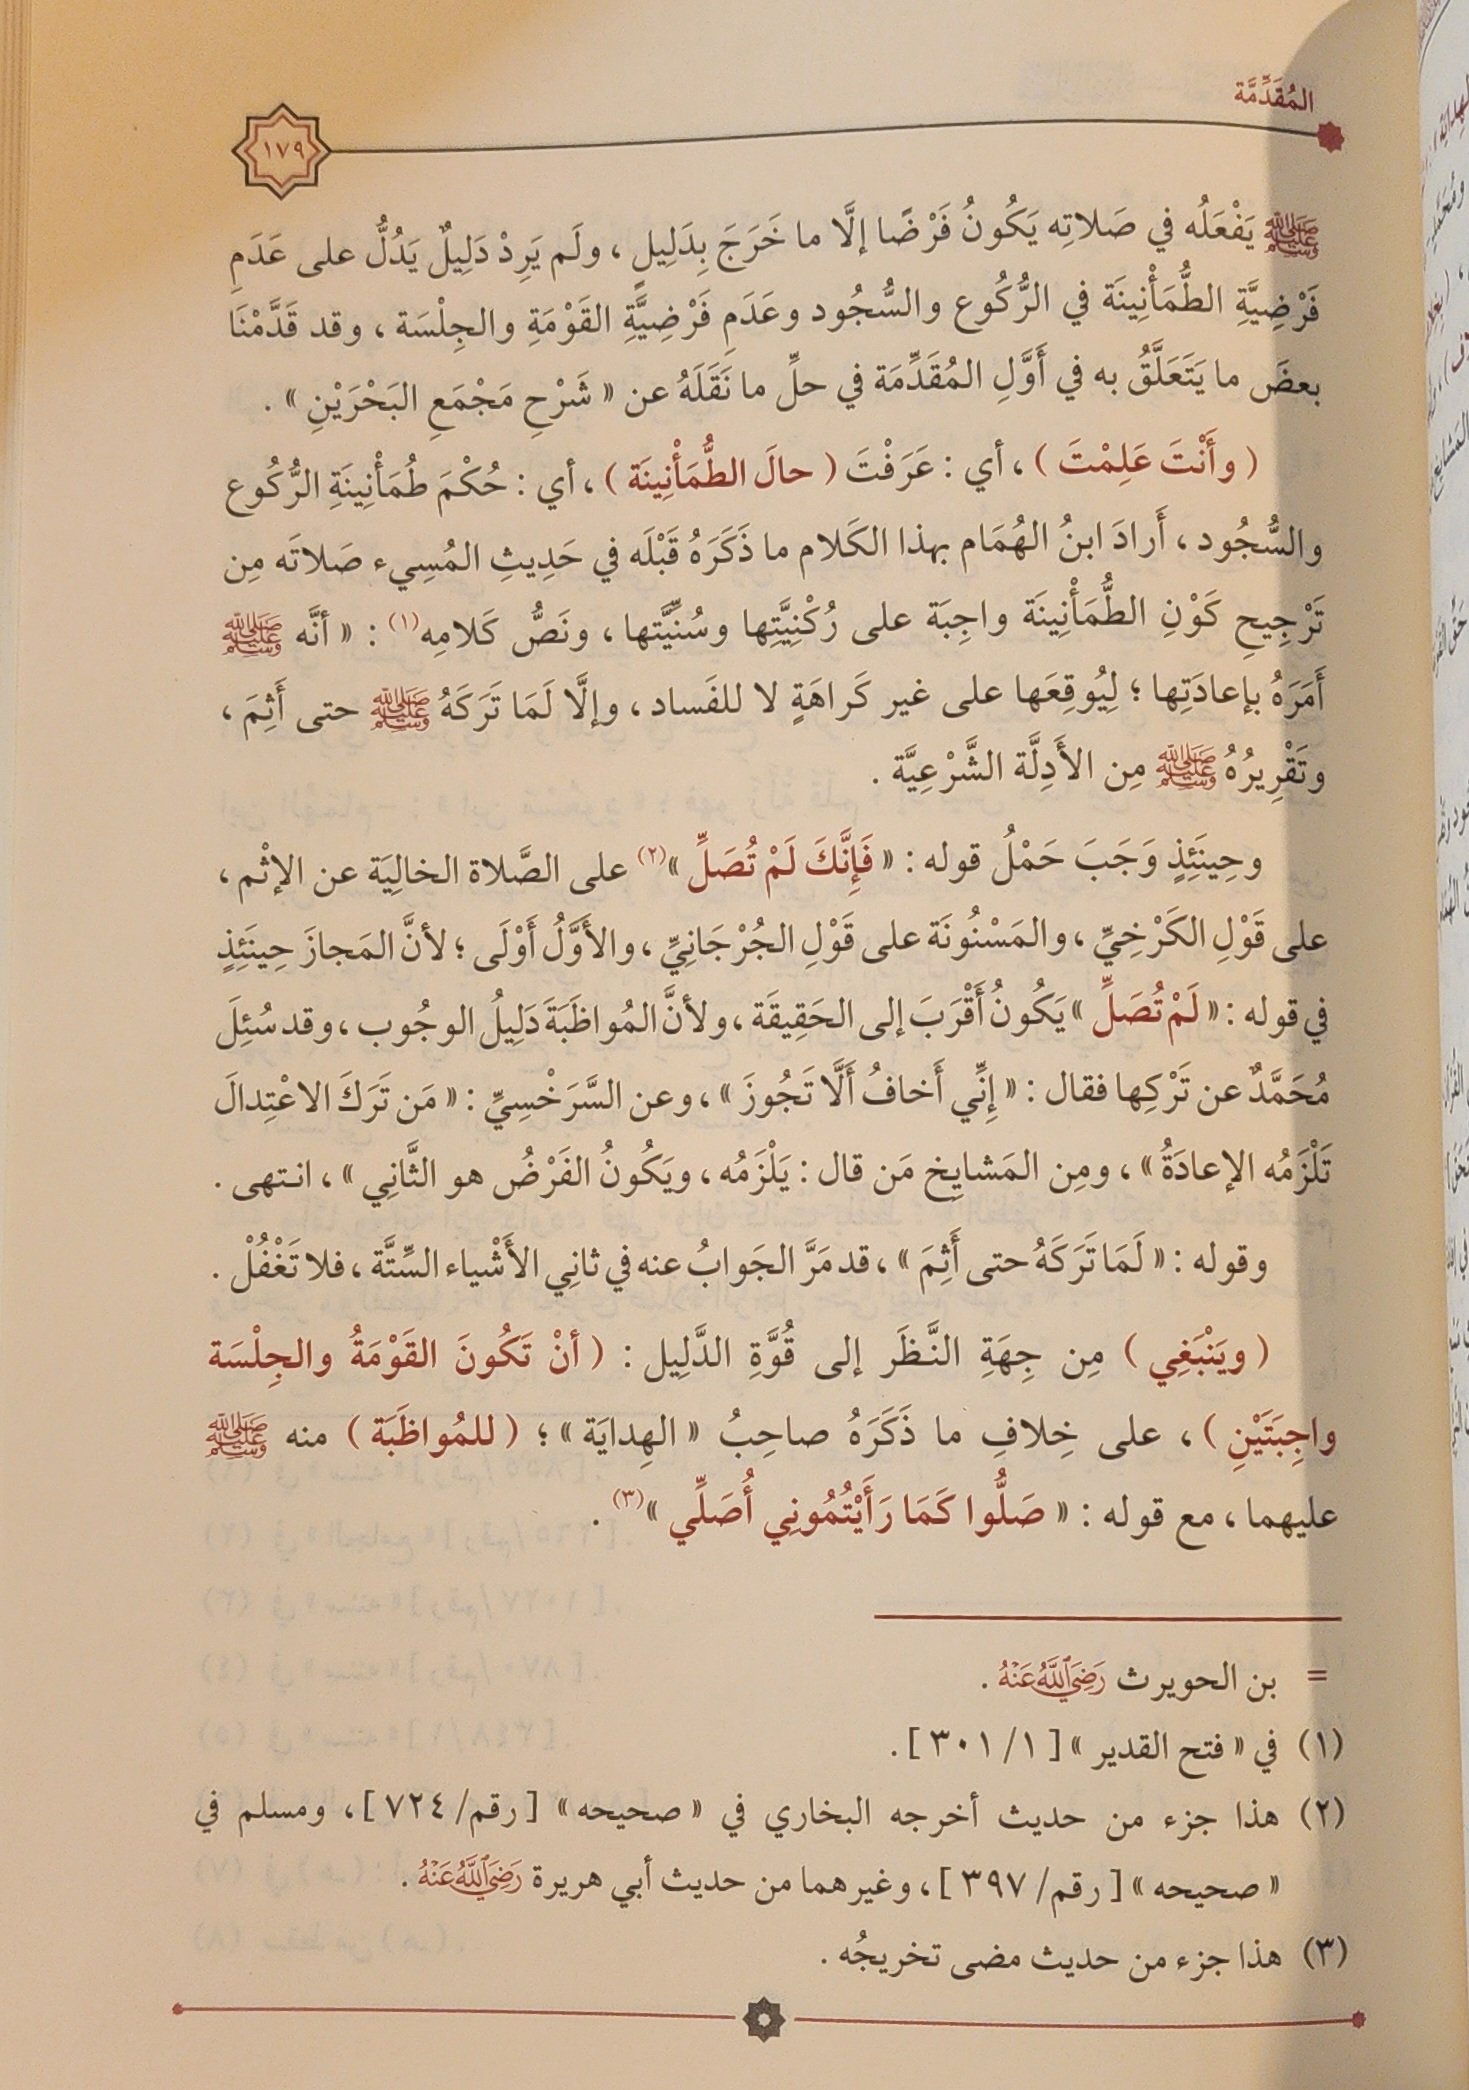 المُقَدِّمَّة
١٧٩
ﷺ يَفْعَلُه في صَلاتِه يَكُونُ فَرْضًا إلَّا ما خَرَجَ بِدَلِيلٍ ، ولَم يَرِدْ دَلِيلٌ يَدُلُّ على عَدَمِ
فَرْضِيَّةِ الطُّمَأْنِينَة في الرُّكُوع والسُّجُود وعَدَمِ فَرْضِيَّةِ القَوْمَةِ والجِلْسَة ، وقد قَدَّمْنَا
بعضَ ما يَتَعَلَّقُ به في أَوَّلِ المُقَدِّمَة في حلِّ ما نَقَلَهُ عن « شَرْحِ مَجْمَعِ البَحْرَيْنِ » .
( وأَنْتَ عَلِمْتَ ) ، أي : عَرَفْتَ ( حالَ الطُّمَأْنِينَة ) ، أي : حُكْمَ طُمَأْنِينَةِ الرُّكُوع
والسُّجُود ، أَرادَ ابنُ الهُمَام بهذا الكَلام ما ذَكَرَهُ قَبْلَه في حَدِيثِ المُسِيء صَلاتَه مِن
تَرْجِيحِ كَوْنِ الطُّمَأْنِينَة واجِبَة على رُكْنِيَّتِها وسُنِّيَّتها ، ونَصُّ كَلامِه(١) : « أنَّه ﷺ
أَمَرَهُ بإعادَتِها ؛ لِيُوقِعَها على غير كَراهَةٍ لا للفَساد ، وإلَّا لَمَا تَرَكَهُ ﷺ حتى أَثِمَ ،
وتَقْرِيرُهُ ﷺ مِن الأَدِلَّة الشَّرْعِيَّة .
وحِينَئِذٍ وَجَبَ حَمْلُ قوله : « فَإِنَّكَ لَمْ تُصَلِّ »(٢) على الصَّلاة الخالِيَة عن الإثْم ،
على قَوْلِ الكَرْخِيِّ ، والمَسْنُونَة على قَوْلِ الجُرْجَانِيِّ ، والأَوَّلُ أَوْلَى ؛ لأنَّ المَجازَ حِينَئِذٍ
في قوله : « لَمْ تُصَلِّ » يَكُونُ أَقْرَبَ إلى الحَقِيقَة ، ولأنَّ المُواظَبَةَ دَلِيلُ الوجُوب ، وقد سُئِلَ
مُحَمَّدٌ عن تَرْكِها فقال : « إِنِّي أَخافُ أَلَّا تَجُوزَ » ، وعن السَّرَخْسِيِّ : « مَن تَرَكَ الاعْتِدالَ
تَلْزَمُه الإعادَةُ » ، ومِن المَشايِخ مَن قال : يَلْزَمُه ، ويَكُونُ الفَرْضُ هو الثَّانِي » ، انـتهى .
وقوله : « لَمَا تَرَكَهُ حتى أَثِمَ » ، قد مَرَّ الجَوابُ عنه في ثانِي الأَشْياء السِّتَّة ، فلا تَغْفُلْ .
( ويَنْبَغِي ) مِن جِهَةِ النَّظَر إلى قُوَّةِ الدَّلِيل : ( أنْ تَكُونَ القَوْمَةُ والجِلْسَة
واجِبَتَيْنِ ) ، على خِلافِ ما ذَكَرَهُ صاحِبُ « الهِدايَة » ؛ ( للمُواظَبَة ) منه ﷺ
عليهما ، مع قوله : « صَلُّوا كَمَا رَأَيْتُمُونِي أُصَلِّي »(٣) .
= بن الحويرث رَضِيَ اللَّهُ عَنْهُ .
(١) في « فتح القدير » [ ١/ ٣٠١ ] .
(٢) هذا جزء من حديث أخرجه البخاري في « صحيحه » [ رقم/ ٧٢٤ ] ، ومسلم في
« صحيحه » [ رقم/ ٣٩٧ ] ، وغيرهما من حديث أبي هريرة رَضِيَ اللَّهُ عَنْهُ .
(٣) هذا جزء من حديث مضى تخريجُه .